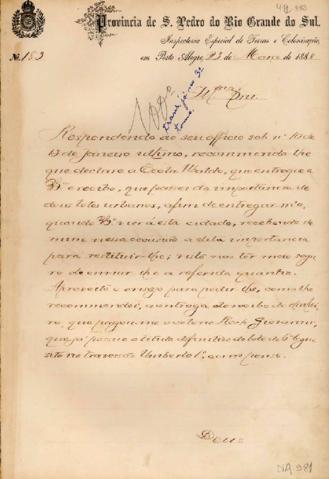 Provincia de S. Pedro do Rio Grande do Sul.
Inspectoria Especial de Terras e Colonisação,
em Porto Alegre, 23 de Março de 188
Nº 153
Respondendo ao seu officio sob nº 10 de
13 de Janeiro ultimo, recommendo lhe
que declare a que entregue a
V. Sª o recibo, que passei da importancia de
dous lotes urbanos, afim de entregar m'o,
quando V. Sª vier á esta cidade, recebendo de
mim nessa occasião a dita importancia
para restituir-lhe, visto não ter meio segu
ro de enviar lhe a referida quantia.
Aproveito o ensejo para pedir lhe, como lhe
recommendei, a entrega do recibo do dinhei
ro, que pagou-me o colono Giovanni,
que já possue o titulo definitivo do lote nº 16
sito no travessão Umberto 1º, como pense.
Deus
NA 981